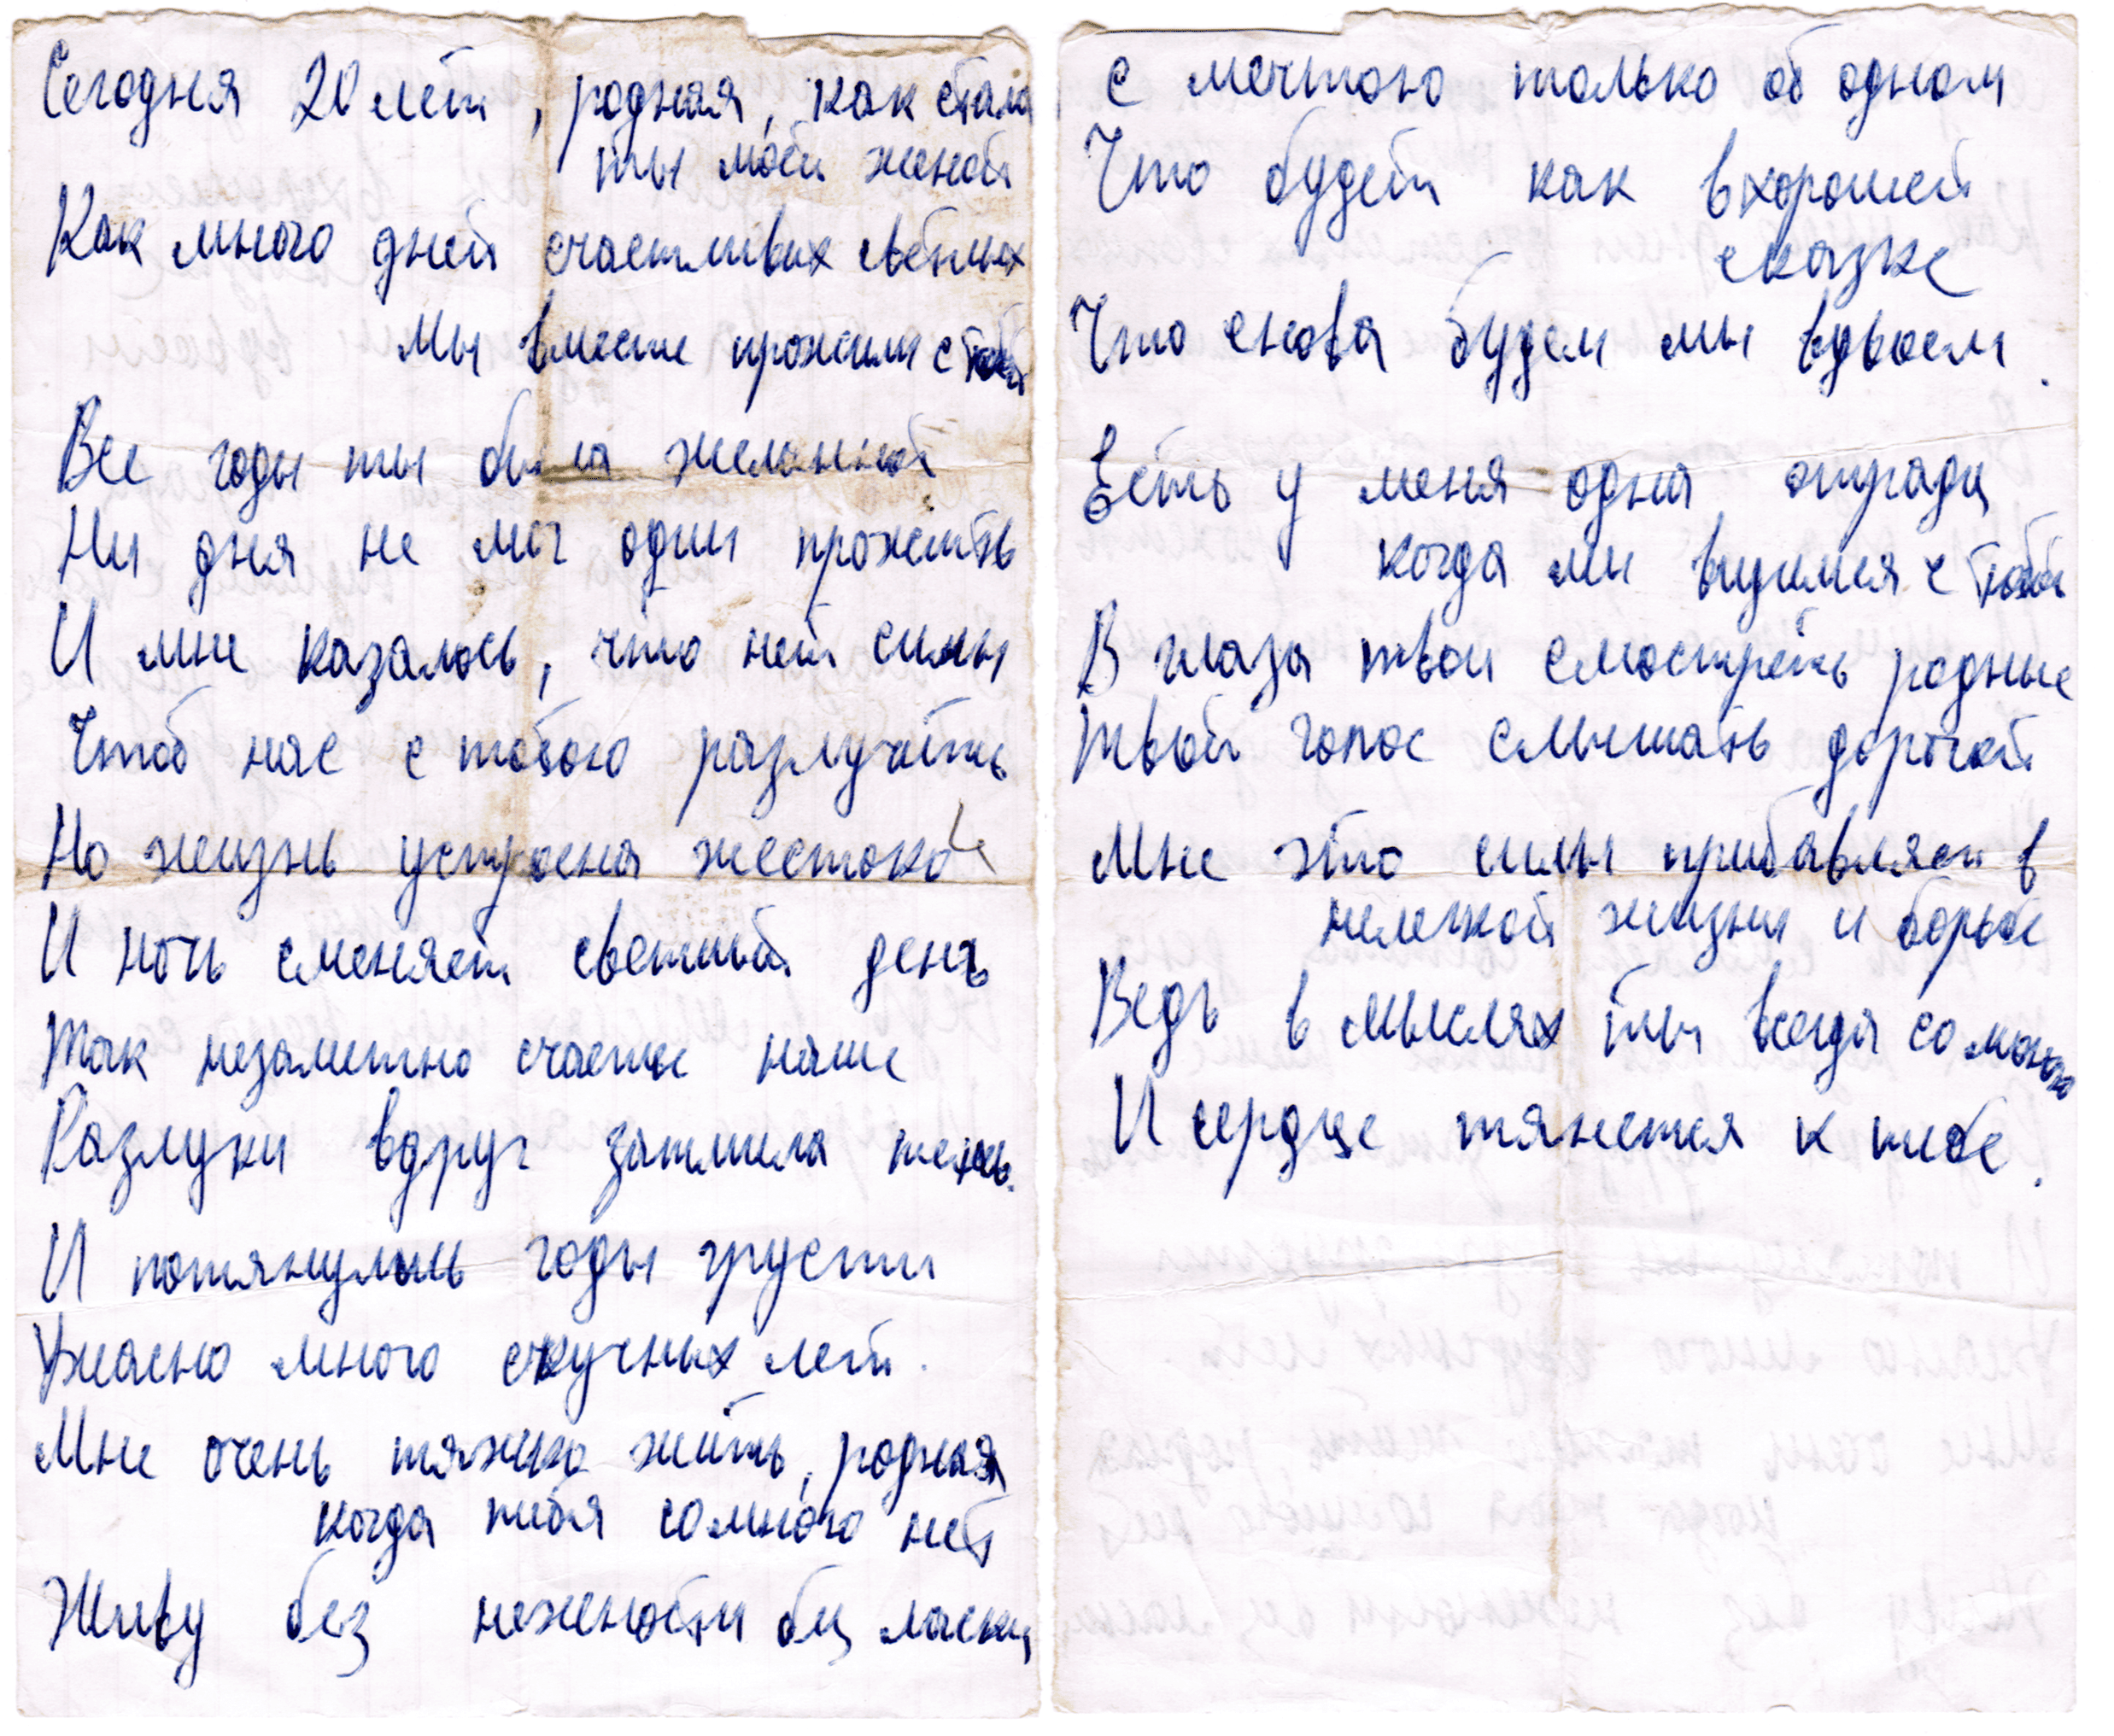 Сегодня 20 лет, родная, как стала
ты моей женой
Как много дней счастливых светлых
мы вместе прожили с тобой
Все годы ты была желанной
Ни дня не мог один прожить
И мне казалось, что нет силы
Чтоб нас с тобою разлучить
Но жизнь устроена жестоко
И ночь сменяет светлый день
Так незаметно счастье наше
Разлуки вдруг затмила тень.
И потянулись годы грусти
Ужасно много скучных лет.
Мне очень тяжко жить, родная
когда тебя со мною нет
Живу без нежности без ласки
с мечтою только об одном
Что будет как в хорошей
сказке
Что снова будем мы вдвоем.
Есть у меня одна отрада
когда мы видимся с тобой
В глаза твои смостреть родные
Твой голос слышать дорогой
Мне это силы прибавляет в
нелегкой жизни и борьбе
Ведь в мыслях ты всегда со мною
И сердце тянется к тебе.